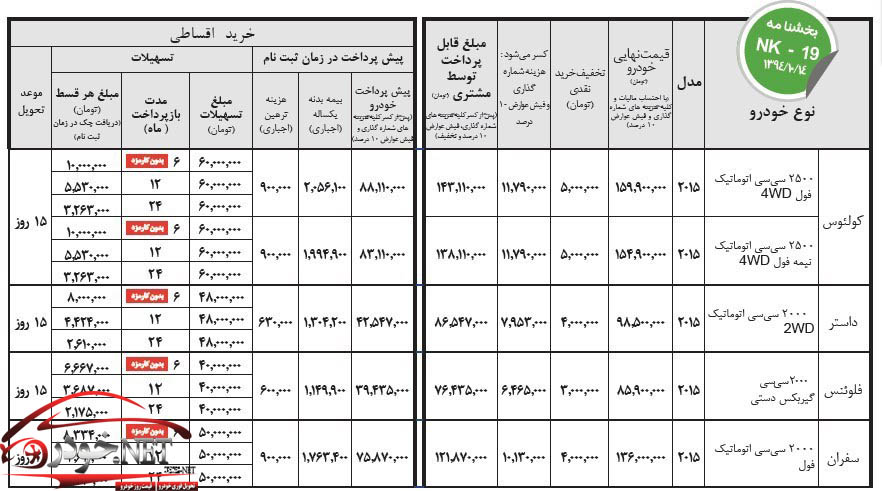 بخشنامه
NK - 19
۱۳۹۴/۱۰/۱۴
نوع خودرو
مدل
قیمت نهایی
خودرو
(تومان)
(با احتساب مالیات و
کلیه هزینه های شماره
گذاری و فیش عوارض
۱۰ درصد)
تخفیف خرید
نقدی
(تومان)
کسر می‌شود:
هزینه شماره
گذاری
وفیش عوارض ۱۰
درصد
مبلغ قابل
پرداخت
توسط
مشتری (تومان)
(پس از کسر کلیه هزینه های
شماره گذاری، فیش عوارض
۱۰ درصد و تخفیف)
خرید اقساطی
پیش پرداخت در زمان ثبت نام
پیش پرداخت
خودرو
(پس از کسر کلیه هزینه
های شماره گذاری و
فیش عوارض ۱۰ درصد)
بیمه بدنه
یکساله
(اجباری)
هزینه
ترهین
(اجباری)
تسهیلات
مبلغ
تسهیلات
(تومان)
مدت
بازپرداخت
( ماه)
مبلغ هر قسط
(تومان)
(دریافت چک در زمان
ثبت نام)
موعد
تحویل
کولئوس
۲۵۰۰ سی‌سی اتوماتیک
فول 4WD
۲۰۱۵
۱۵۹,۹۰۰,۰۰۰
۵,۰۰۰,۰۰۰
۱۱,۷۹۰,۰۰۰
۱۴۳,۱۱۰,۰۰۰
۸۸,۱۱۰,۰۰۰
۲,۰۵۶,۱۰۰
۹۰۰,۰۰۰
۶۰,۰۰۰,۰۰۰ ۶ بدون کارمزد ۱۰,۰۰۰,۰۰۰
۶۰,۰۰۰,۰۰۰ ۱۲ ۵,۵۳۰,۰۰۰
۶۰,۰۰۰,۰۰۰ ۲۴ ۳,۲۶۳,۰۰۰
۱۵ روز
۲۵۰۰ سی‌سی اتوماتیک
نیمه فول 4WD
۲۰۱۵
۱۵۴,۹۰۰,۰۰۰
۵,۰۰۰,۰۰۰
۱۱,۷۹۰,۰۰۰
۱۳۸,۱۱۰,۰۰۰
۸۳,۱۱۰,۰۰۰
۱,۹۹۴,۹۰۰
۹۰۰,۰۰۰
۶۰,۰۰۰,۰۰۰ ۶ بدون کارمزد ۱۰,۰۰۰,۰۰۰
۶۰,۰۰۰,۰۰۰ ۱۲ ۵,۵۳۰,۰۰۰
۶۰,۰۰۰,۰۰۰ ۲۴ ۳,۲۶۳,۰۰۰
داستر
۲۰۰۰ سی‌سی اتوماتیک
2WD
۲۰۱۵
۹۸,۵۰۰,۰۰۰
۴,۰۰۰,۰۰۰
۷,۹۵۳,۰۰۰
۸۶,۵۴۷,۰۰۰
۴۲,۵۴۷,۰۰۰
۱,۳۰۴,۲۰۰
۶۳۰,۰۰۰
۴۸,۰۰۰,۰۰۰ ۶ بدون کارمزد ۸,۰۰۰,۰۰۰
۴۸,۰۰۰,۰۰۰ ۱۲ ۴,۴۲۴,۰۰۰
۴۸,۰۰۰,۰۰۰ ۲۴ ۲,۶۱۰,۰۰۰
۱۵ روز
فلوئنس
۲۰۰۰سی‌سی
گیربکس دستی
۲۰۱۵
۸۵,۹۰۰,۰۰۰
۳,۰۰۰,۰۰۰
۶,۴۶۵,۰۰۰
۷۶,۴۳۵,۰۰۰
۳۹,۴۳۵,۰۰۰
۱,۱۴۹,۹۰۰
۶۰۰,۰۰۰
۴۰,۰۰۰,۰۰۰ ۶ بدون کارمزد ۶,۶۶۷,۰۰۰
۴۰,۰۰۰,۰۰۰ ۱۲ ۳,۶۸۷,۰۰۰
۴۰,۰۰۰,۰۰۰ ۲۴ ۲,۱۷۵,۰۰۰
۱۵ روز
سفران
۲۰۰۰ سی‌سی اتوماتیک
فول
۲۰۱۵
۱۳۶,۰۰۰,۰۰۰
۴,۰۰۰,۰۰۰
۱۰,۱۳۰,۰۰۰
۱۲۱,۸۷۰,۰۰۰
۷۵,۸۷۰,۰۰۰
۱,۷۶۳,۴۰۰
۹۰۰,۰۰۰
۵۰,۰۰۰,۰۰۰ ۶ بدون کارمزد ۸,۳۳۴,۰۰۰
۵۰,۰۰۰,۰۰۰
۵۰,۰۰۰,۰۰۰ ۲۴
روز
خودرو.NET